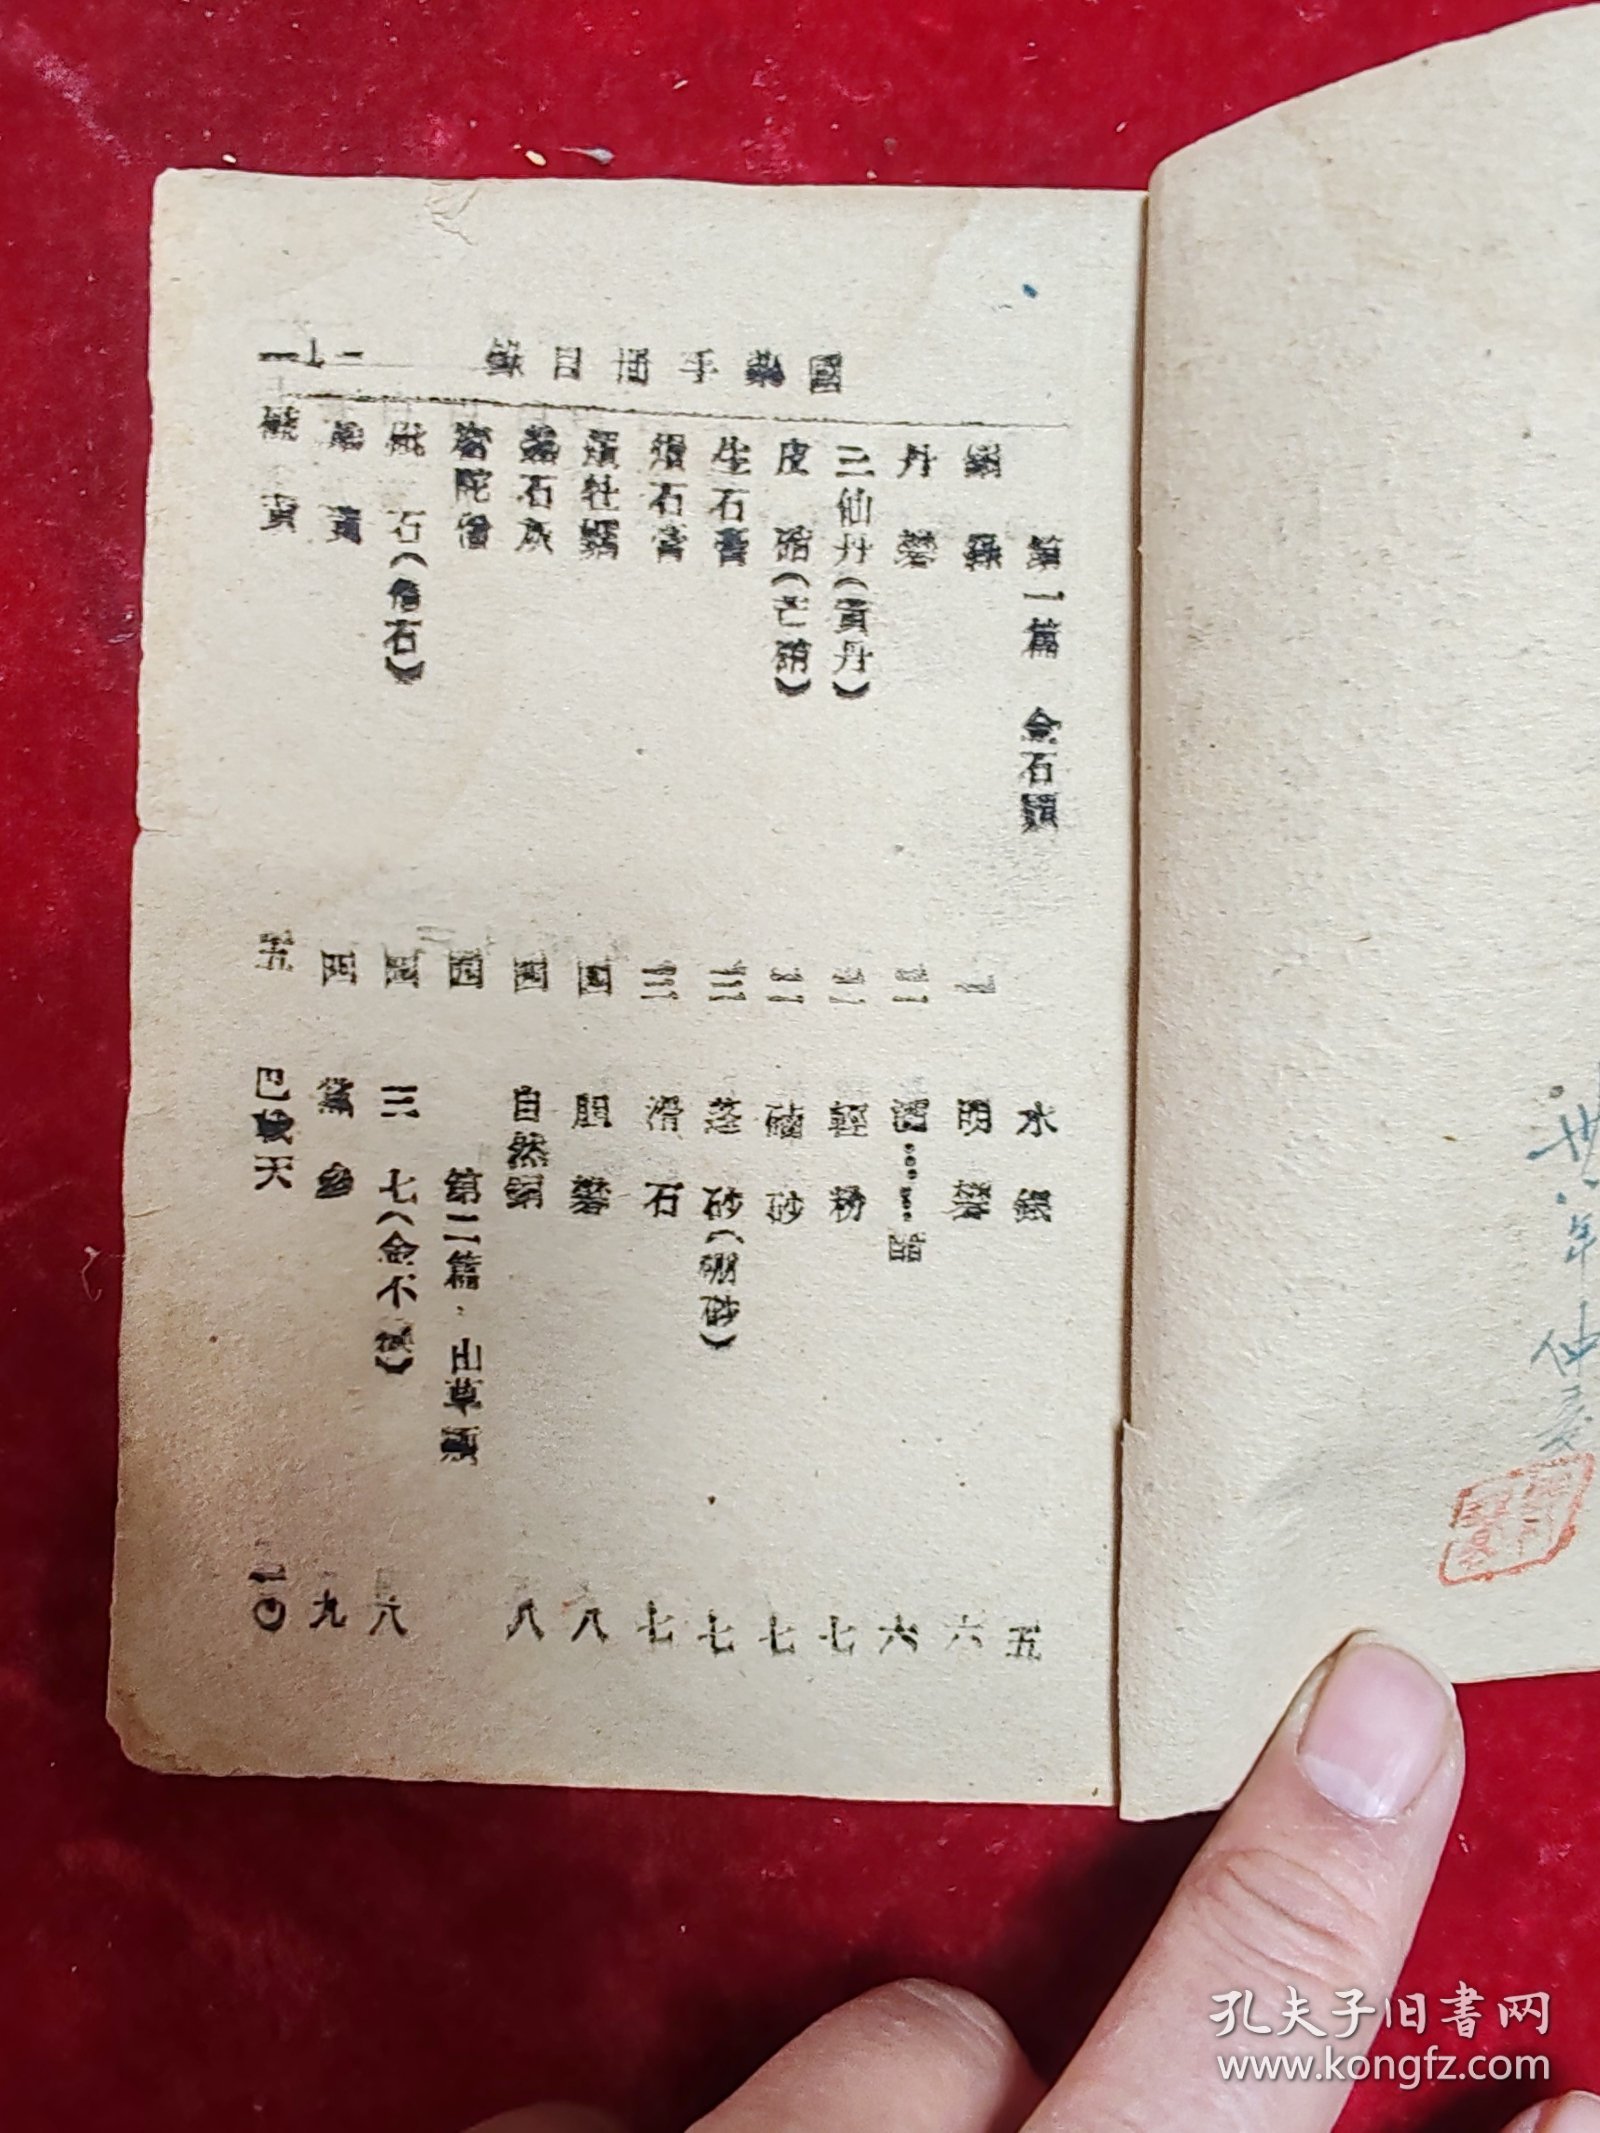 國藥手冊目錄
第一篇 金石類
銅綠 一
丹礬
三仙丹(黃丹)
皮硝(芒硝)
生石膏 三
煅石膏 三
煅牡蠣 四
熟石灰 四
密陀僧 四
砒石(信石) 四
雌黃 四
硫黃 五
水銀 五
明礬 六
六
輕粉 七
硇砂 七
蓬砂(硼砂) 七
滑石 七
胆礬 八
自然銅 八
第二篇 山草類
三七(金不換) 八
黨參 九
巴戟天 一〇
卅八年 仲夏
孔夫子旧书网
www.kongfz.com